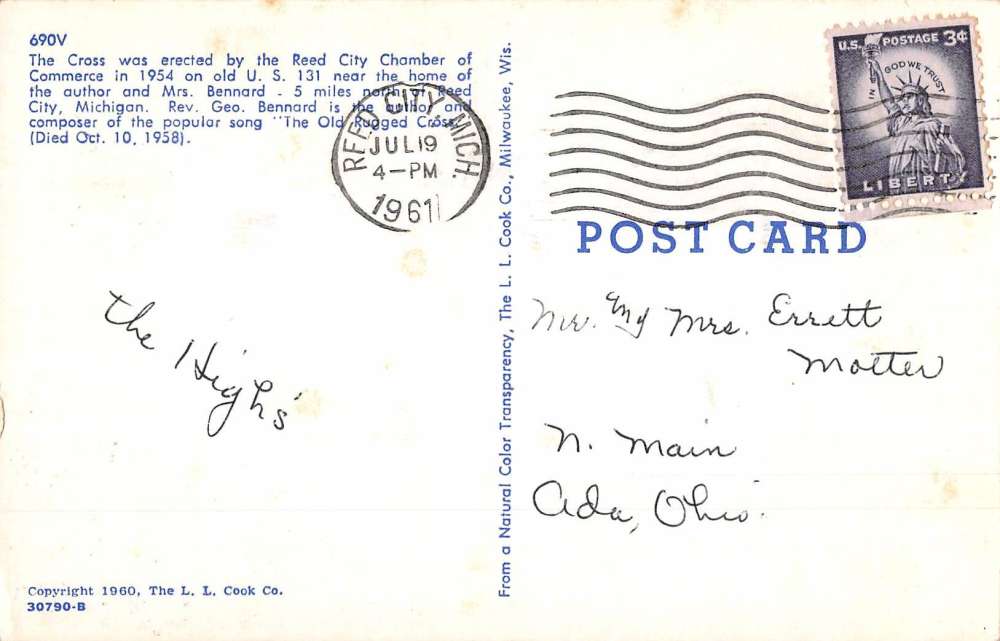 690V
The Cross was erected by the Reed City Chamber of
Commerce in 1954 on old U. S. 131 near the home of
the author and Mrs. Bennard - 5 miles north of Reed
City, Michigan. Rev. Geo. Bennard is the author and
composer of the popular song "The Old Rugged Cross."
(Died Oct. 10, 1958).
REED CITY, MICH.
JUL 19
4-PM
1961
U.S. POSTAGE 3¢
IN GOD WE TRUST
LIBERTY
POST CARD
the High's
Mr. and Mrs. Errett
Motter
N. Main
Ada, Ohio.
From a Natural Color Transparency, The L. L. Cook Co., Milwaukee, Wis.
Copyright 1960, The L. L. Cook Co.
30790-B